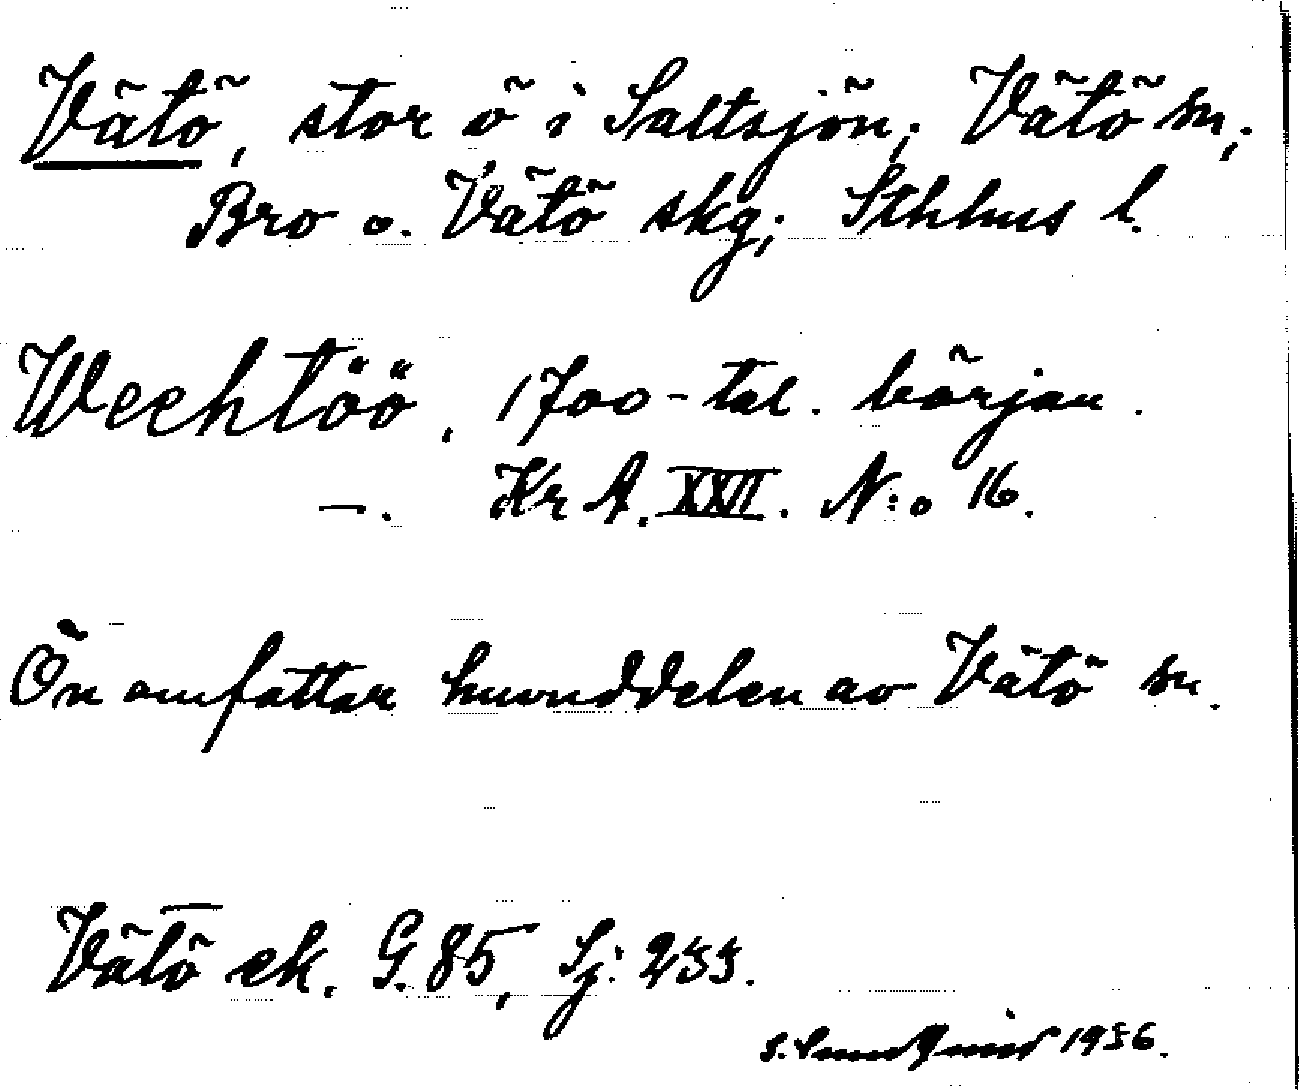 Vätö, stor ö i Saltsjön; Vätö sn;
Bro o. Vätö skg; Sthlms l.
Wechtöö, 1700-tal. början.
—. Kr A. XXVI. N:o 16.
Ön omfattar huvuddelen av Vätö sn.
Vätö ek. G. 85, Sj: 233.
S. 1936.